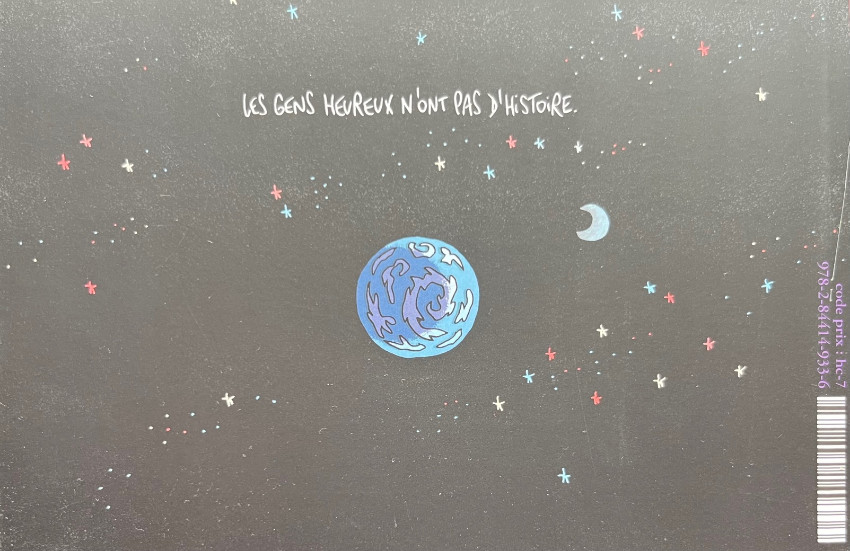 LES GENS HEUREUX N'ONT PAS D'HISTOIRE.
code prix : hc-7
978-2-84414-933-6